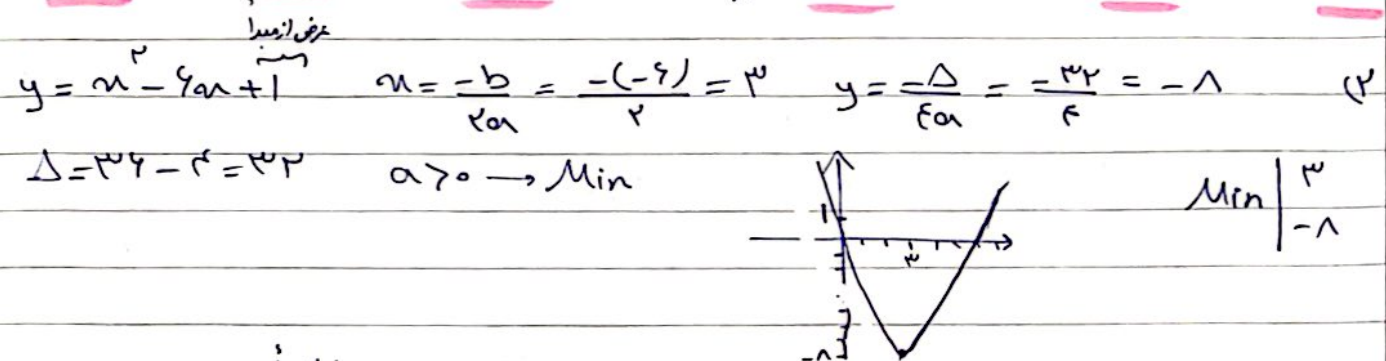 عرض از مبدا
y = x^۲ - ۶x + 1    x = -b/۲a = -(-۶)/۲ = ۳    y = -Δ/۴a = -۳۲/۴ = -۸    (۲
Δ = ۳۶ - ۴ = ۳۲    a > ۰ → Min    Min | ۳
-۸
1
۳
-۸